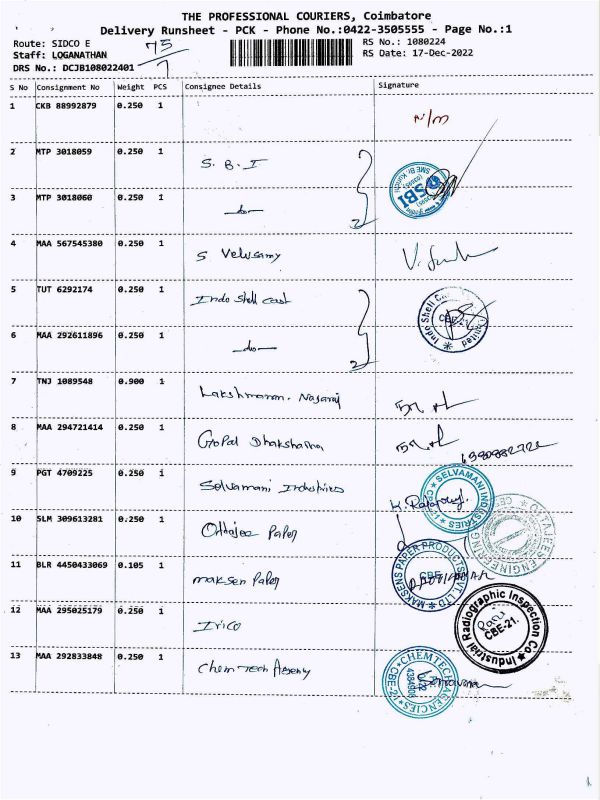 THE PROFESSIONAL COURIERS, Coimbatore
Delivery Runsheet - PCK - Phone No.:0422-3505555 - Page No.:1
Route: SIDCO E
RS No.: 1080224
Staff: LOGANATHAN
RS Date: 17-Dec-2022
DRS No.: DCJB108022401
75
7
S No Consignment No Weight PCS Consignee Details Signature
1 CKB 88992879 0.250 1 N/m
2 MTP 3018059 0.250 1 S. B. I
3 MTP 3018060 0.250 1 -do- 2
SBI
4 MAA 567545380 0.250 1 S Velusamy
5 TUT 6292174 0.250 1 Indo Shell Cast
6 MAA 292611896 0.250 1 -do- 2
CBE-21
7 TNJ 1089548 0.900 1 Lakshmanan. Nagaraj
8 MAA 294721414 0.250 1 Gopal Dhakshana
9 PGT 4709225 0.250 1 Selvamani Industries
SELVAMANI INDUSTRIES
10 SLM 309613281 0.250 1 Ottajee Paper
11 BLR 4450433069 0.105 1 Maksen Paper
MAKSENS PAPER PRODUCTS PVT. LTD
CBE
12 MAA 295025179 0.250 1 Irico
Industrial Radiographic Inspection Co
CBE-21.
13 MAA 292833848 0.250 1 Chem Tech Agency
CHEMTECH AGENCIES
CBE-21